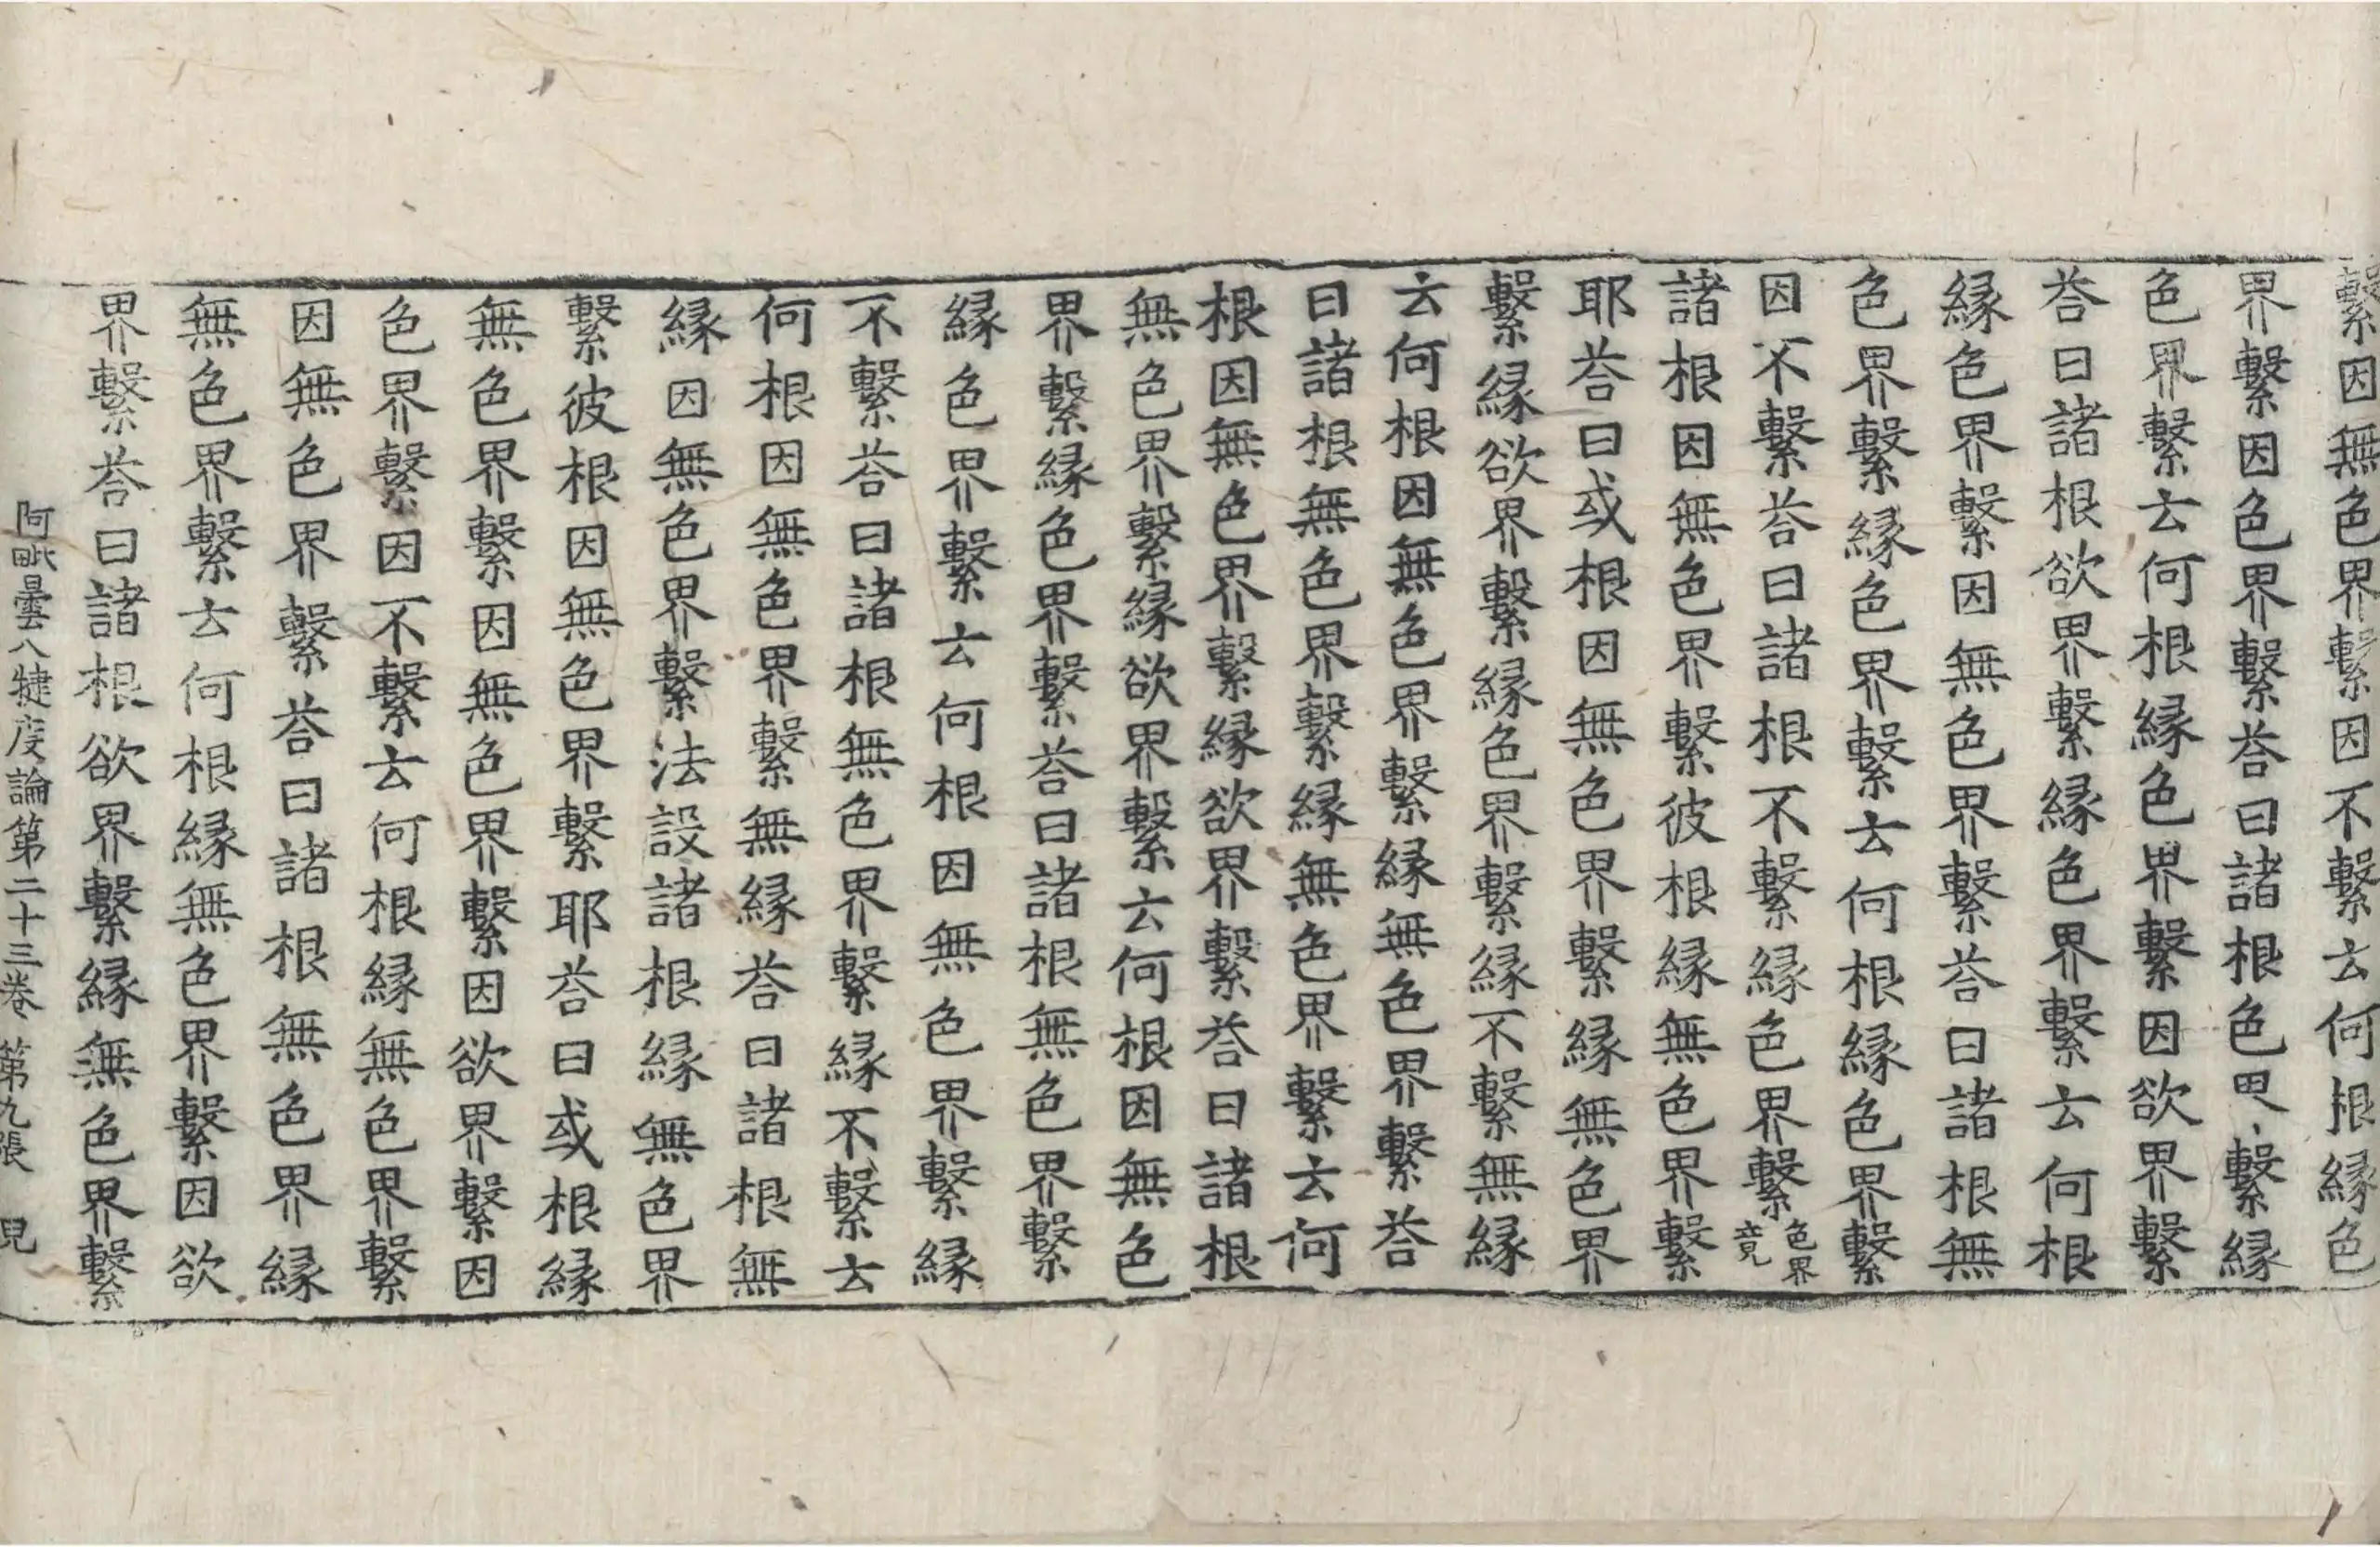 繫因無色界繫因不繫去何根縁色
界繫因色界繫荅曰諸根色界繫縁
色界繫去何根縁色界繫因欲界繫
荅曰諸根欲界繫縁色界繫去何根
縁色界繫因無色界繫荅曰諸根無
色界繫縁色界繫去何根縁色界繫
因不繫荅曰諸根不繫縁色界繫色界竟
諸根因無色界繫彼根縁無色界繫
耶荅曰或根因無色界繫縁無色界
繫縁欲界繫縁色界繫縁不繫無縁
去何根因無色界繫縁無色界繫荅
曰諸根無色界繫縁無色界繫去何
根因無色界繫縁欲界繫荅曰諸根
無色界繫縁欲界繫去何根因無色
界繫縁色界繫荅曰諸根無色界繫
縁色界繫去何根因無色界繫縁
不繫荅曰諸根無色界繫縁不繫去
何根因無色界繫無縁荅曰諸根無
縁因無色界繫法設諸根縁無色界
繫彼根因無色界繫耶荅曰或根縁
無色界繫因無色界繫因欲界繫因
色界繫因不繫去何根縁無色界繫
因無色界繫荅曰諸根無色界縁
無色界繫去何根縁無色界繫因欲
界繫荅曰諸根欲界繫縁無色界繫
阿毗曇八犍度論第二十三卷 第九張 見